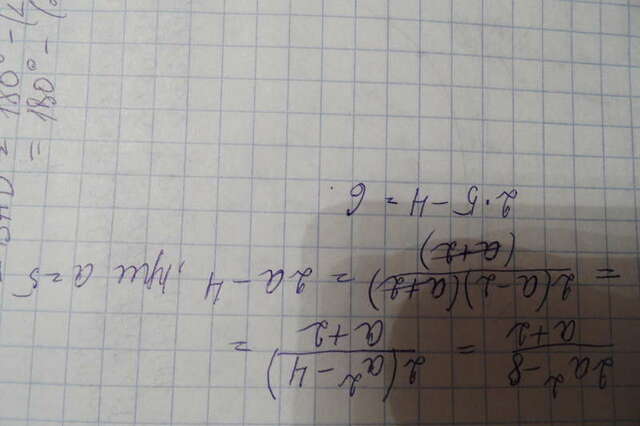 (2a² - 8)/(a + 2) = 2(a² - 4)/(a + 2) =
= 2(a - 2)(a + 2)/(a + 2) = 2a - 4, при a = 5
2 · 5 - 4 = 6
180° - (
= 180° - (